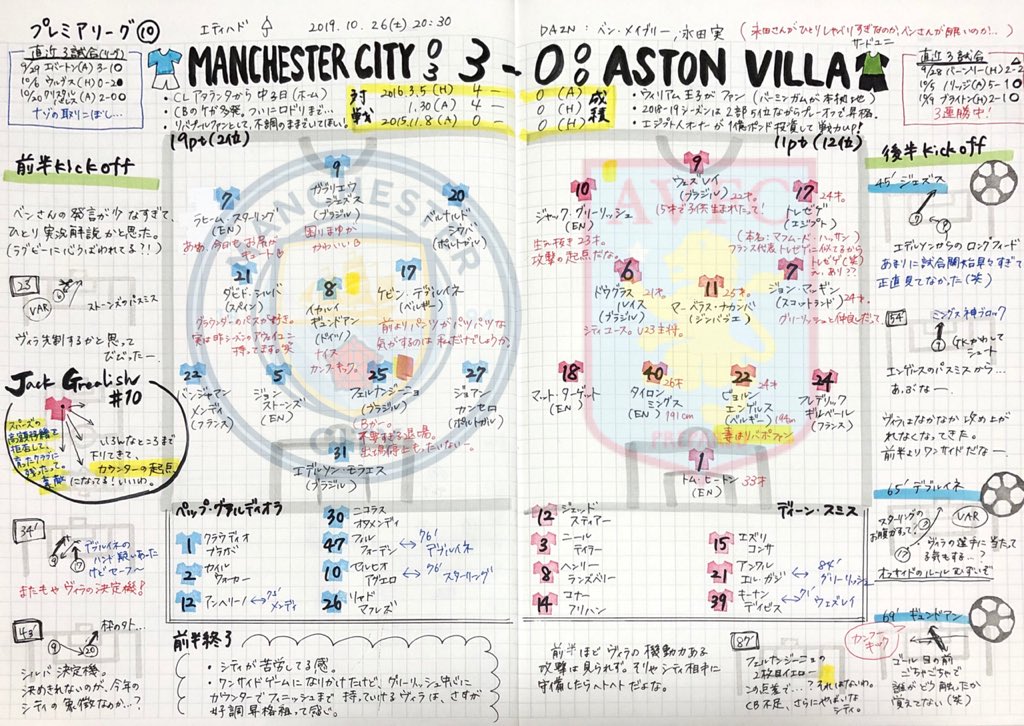 プレミアリーグ⑩
エティハド
2019.10.26(土) 20:30
DAZN: ベン・メイブリー, 永田実
(永田さんがひとりしゃべりすぎなのか、ベンさんが無いのか!..)
サードユニ
直近3試合(リーグ)
9/29 エバートン(A) 3-1○
10/6 ウルブス(H) 0-2●
10/20 クリスタルパレス(A) 2-0○
ナゾの取りこぼし…
MANCHESTER CITY 3 3-0 0 ASTON VILLA
直近3試合
9/28 バーンリー(H) 2-2
10/5 ノリッジ(A) 5-1○
10/19 ブライトン(H) 2-1○
3連勝中!
・CLアタランタから中3日(ホーム)
・CBのケガ多発。ついにロドリまで…
・リバプールファンとして、不調のままでいてほしい。
19pt(2位)
対戦
2016.3.5(H) 4-0(A)
1.30(A) 4-0(H)
2015.11.8(A) 0-0(H)
成績
・ウィリアム王子がファン(バーミンガムが本拠地)
・2018-19シーズンは2部5位ながらプレーオフで昇格。
・エジプト人オーナーが1億ポンド投資して戦力UP!
11pt(12位)
前半kickoff
ベンさんの発言が少なすぎて、
ひとり実況解説かと思った。
(ラグビーに心うばわれてる?!)
23'
VAR
ストーンズのパスミス
ヴィラ先制するかと思って
びびったー
Jack Grealish
#10
スパーズの
高額移籍を
拒否して、
育ったクラブに
残ったって。
素敵
いろんなところまで
下りてきて、
カウンターの起点
になってる!いいわ。
34'
デブルイネの
ハンド疑いあった
けどセーフ〜
またもやヴィラの決定機!
43'
枠の外…
シルバ決定機。
決めきれないのが、今年の
シティの象徴なのか…?
9
ガブリエウ
ジェズス
(ブラジル)
困りまゆが
かわいいB
7
ラヒーム・スターリング
(EN)
ああ、今日もお尻が
キュート♡
20
ベルナルド
シウバ
(ポルトガル)
21
ダビド・シルバ
(スペイン)
グラウンダーのパスが好き。
8
イルカイ
ギュンドアン
(ドイツ)
ナイス
カンフーキック。
17
ケビン・デブルイネ
(ベルギー)
前よりパンツがパツパツな
気がするのは私だけでしょうか。
22
バンジャマン
メンディ
(フランス)
5
ジョン
ストーンズ
(EN)
25
フェルナンジーニョ
(ブラジル)
Bかー。
不幸すぎる退場。
出場停止もったいないー。
27
ジョアン
カンセロ
(ポルトガル)
31
エデルソン・モラエス
(ブラジル)
9
ウェズレイ
(ブラジル) 22才
15才で子供生まれたって!
10
ジャック・グリーリッシュ
(EN)
生え抜き23才。
攻撃の起点だな。
17 24才
トレゼゲ
(エジプト)
(本名:マフムード・ハッサン)
フランス代表トレゼゲに似てるから
トレゼゲ(笑)
え、あり??
6
ドウグラス 21才。
ルイス
(ブラジル)
シティユース。U23主将。
11 25才
マーベラス・ナカンバ
(ジンバブエ)
7
ジョン・マッギン
(スコットランド) 24才。
グリーリッシュと仲良しだって。
18
マット・ターゲット
(EN)
40 26才
タイロン
ミングス
(EN) 191cm
22 24才
ビョルン
エンゲルス
(ベルギー) 194cm
妻はリバポファン
24 24才
フレデリック
ギルベール
(フランス)
1
トム・ヒートン 33才
(EN)
ペップ・グアルディオラ
1 クラウディオ
ブラボ
2 カイル
ウォーカー
12 アンヘリーノ ↔ 71' メンディ
30 ニコラス
オタメンディ
47 フィル
フォーデン ↔ 76' デブルイネ
10 セルヒオ
アグエロ ↔ 76' スターリング
26 リヤド
マフレズ
ディーン・スミス
12 ジェッド
スティアー
3 ニール
テイラー
8 ヘンリー
ランズベリー
14 コナー
フリハン
15 エズリ
コンサ
21 アンワル
エル・ガジ ↔ 84' グリーリッシュ
39 キーナン
デイビス ↔ 71' ウェズレイ
前半終了
・シティが苦労してる感。
・ワンサイドゲームになりかけたけど、グリーリッシュ中心に
カウンターでフィニッシュまで持っていけるヴィラは、さすが
好調昇格組って感じ。
前半ほどヴィラの機動力ある
攻撃は見られず。そりゃシティ相手に
守備したらヘトヘトだよな。
87'
フェルナンジーニョの
2枚目イエロー
この点差で…? それはないわ。
CB不足、さらにやばいな
シティ。
後半kickoff
45' ジェズス
エデルソンからのロングフィード
あまりに試合開始早々すぎて
正直見てなかった(笑)
54'
ミングス神ブロック
GKかわして
シュート
エンゲルスのパスミスから…
あぶなー
ヴィラはなかなか攻め上が
れなくなってきた。
前半よりワンサイドだなー
65' デブルイネ
スターリングの
お腹かすって?
VAR
ヴィラの選手に当たって
る気もする…?
オフサイドのルールむずいぞ
69' ギュンドアン
カンフー
キック
ゴール目の前
ごちゃごちゃで
誰がどう触ったか
覚えてない(笑)